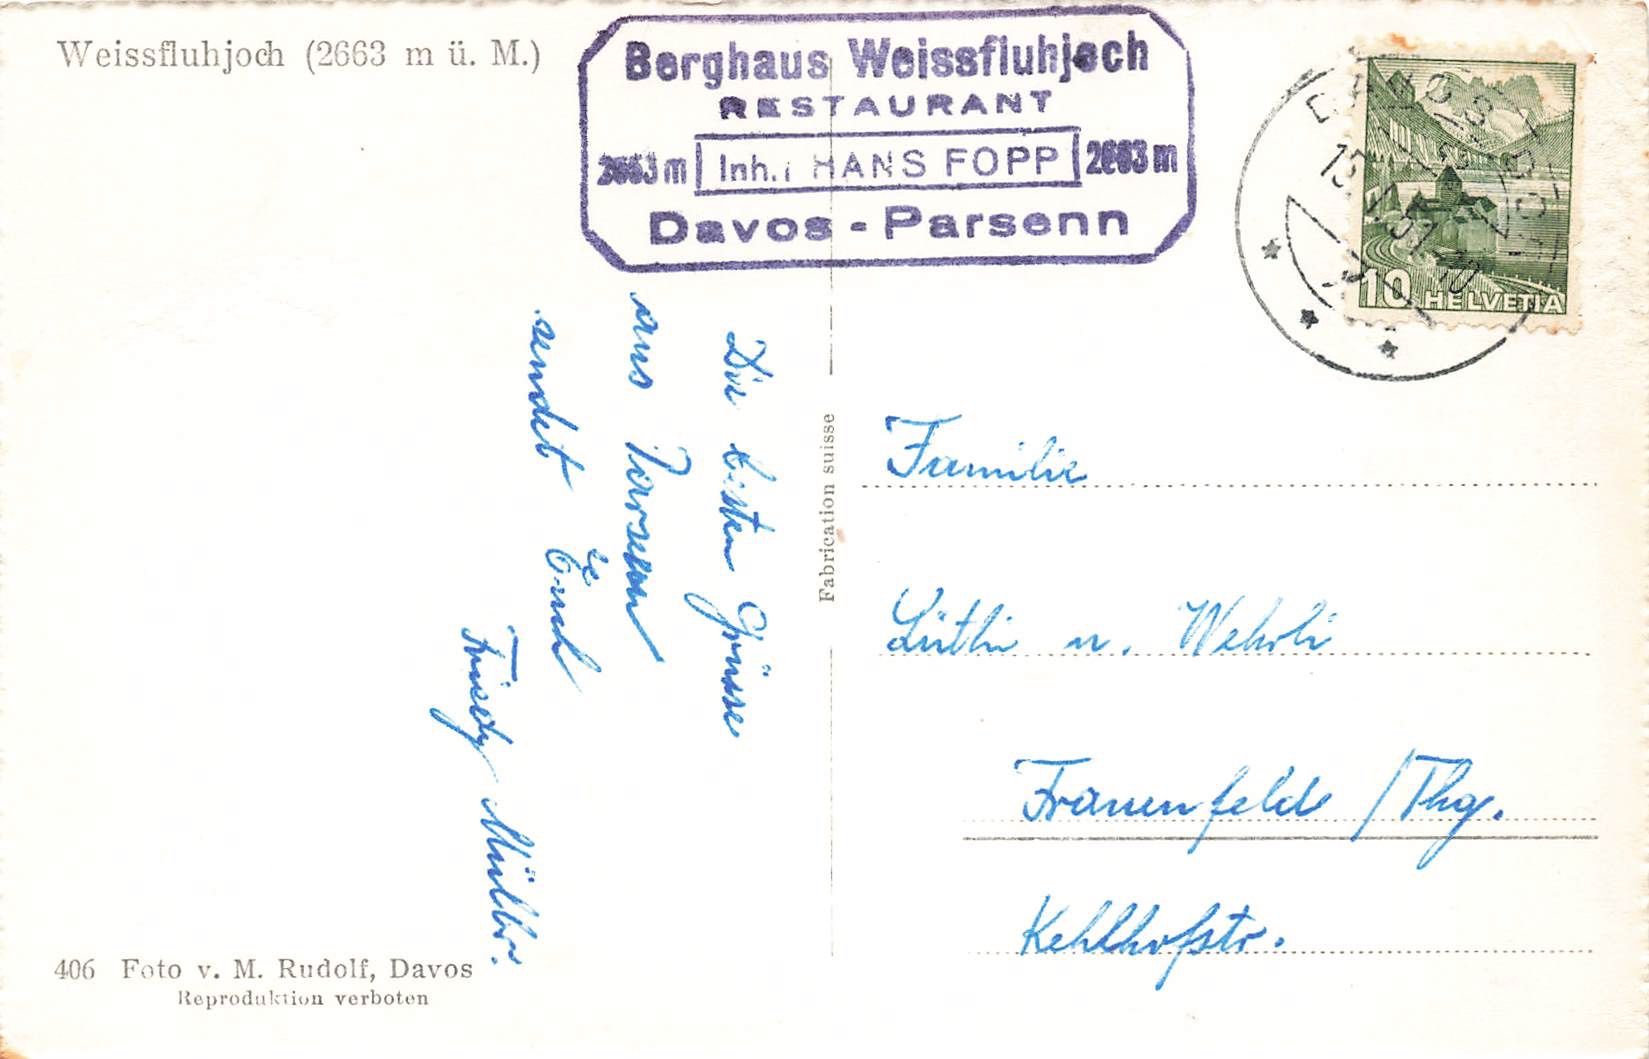 Weissfluhjoch (2663 m ü. M.)
Berghaus Weissfluhjoch
RESTAURANT
2663 m Inh.: HANS FOPP 2663 m
Davos - Parsenn
DAVOS
10 HELVETIA
Die besten Grüsse
aus Parsenn
sendet Euch
Friedy Müller.
Fabrication suisse
Familie
Lüthi u. Wehrli
Frauenfeld /Thg.
Kehlhofstr.
406 Foto v. M. Rudolf, Davos
Reproduktion verboten